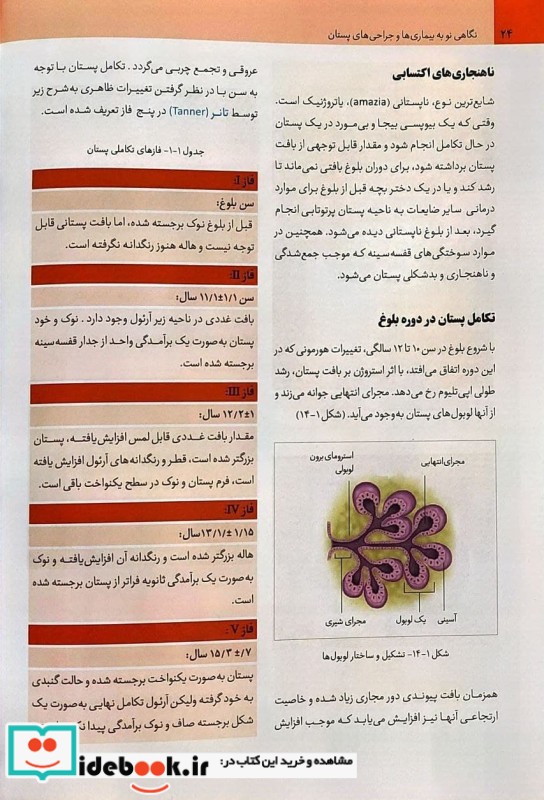 ۲۴
نگاهی نو به بیماری‌ها و جراحی‌های پستان
ناهنجاری‌های اکتسابی
شایع‌ترین نوع، ناپستانی (amazia)، یاتروژنیک است.
وقتی که یک بیوپسی بیجا و بی‌مورد در یک پستان
در حال تکامل انجام شود و مقدار قابل توجهی از بافت
پستان برداشته شود، برای دوران بلوغ بافتی نمی‌ماند تا
رشد کند و یا در یک دختر بچه قبل از بلوغ برای موارد
درمانی سایر ضایعات به ناحیه پستان پرتوتابی انجام
گیرد، بعد از بلوغ ناپستانی دیده می‌شود. همچنین در
موارد سوختگی‌های قفسه سینه که موجب جمع‌شدگی
و ناهنجاری و بدشکلی پستان می‌شود.
تکامل پستان در دوره بلوغ
با شروع بلوغ در سن ۱۰ تا ۱۲ سالگی، تغییرات هورمونی که در
این دوره اتفاق می‌افتد، با اثر استروژن بر بافت پستان، رشد
طولی اپی‌تلیوم رخ می‌دهد. مجرای انتهایی جوانه می‌زند و
از آنها لوبول‌های پستان به‌وجود می‌آید. (شکل ۱-۱۴)
مجرای انتهایی
استرومای برون
لوبولی
آسینی
یک لوبول
مجرای شیری
شکل ۱-۱۴- تشکیل و ساختار لوبول‌ها
همزمان بافت پیوندی دور مجاری زیاد شده و خاصیت
ارتجاعی آنها نیز افزایش می‌یابد که موجب افزایش
عروقی و تجمع چربی می‌گردد. تکامل پستان با توجه
به سن با در نظر گرفتن تغییرات ظاهری به‌شرح زیر
توسط تانر (Tanner) در پنج فاز تعریف شده است.
جدول ۱-۱- فازهای تکاملی پستان
فاز I:
سن بلوغ:
قبل از بلوغ نوک برجسته شده، اما بافت پستانی قابل
توجه نیست و هاله هنوز رنگدانه نگرفته است.
فاز II:
سن ۱۱/۱±۱/۱ سال:
بافت غددی در ناحیه زیر آرئول وجود دارد. نوک و خود
پستان به‌صورت یک برآمدگی واحد از جدار قفسه سینه
برجسته شده است.
فاز III:
۱۲/۲±۱ سال:
مقدار بافت غددی قابل لمس افزایش‌یافته، پستان
بزرگتر شده است، قطر و رنگدانه‌های آرئول افزایش یافته
است، فرم پستان و نوک در سطح یکنواخت باقی است.
فاز IV:
۱۳/۱± ۱/۱۵ سال:
هاله بزرگتر شده است و رنگدانه آن افزایش‌یافته و نوک
به‌صورت یک برآمدگی ثانویه فراتر از پستان برجسته شده
است.
فاز V:
۱۵/۳ ±۰/۷ سال:
پستان به‌صورت یکنواخت برجسته شده و حالت گنبدی
به خود گرفته ولیکن آرئول تکامل نهایی به‌صورت یک
شکل برجسته صاف و نوک برآمدگی پیدا
مشاهده و خرید این کتاب در:
idebook.ir